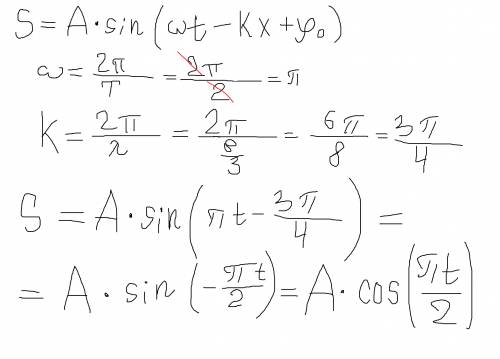 S = A·sin(ωt − Kx + φ₀)
ω = 2π/T = 2π/2 = π
K = 2π/λ = 2π/(8/3) = 6π/8 = 3π/4
S = A·sin(πt − 3π/4) =
= A·sin(−πt/2) = A·cos(πt/2)